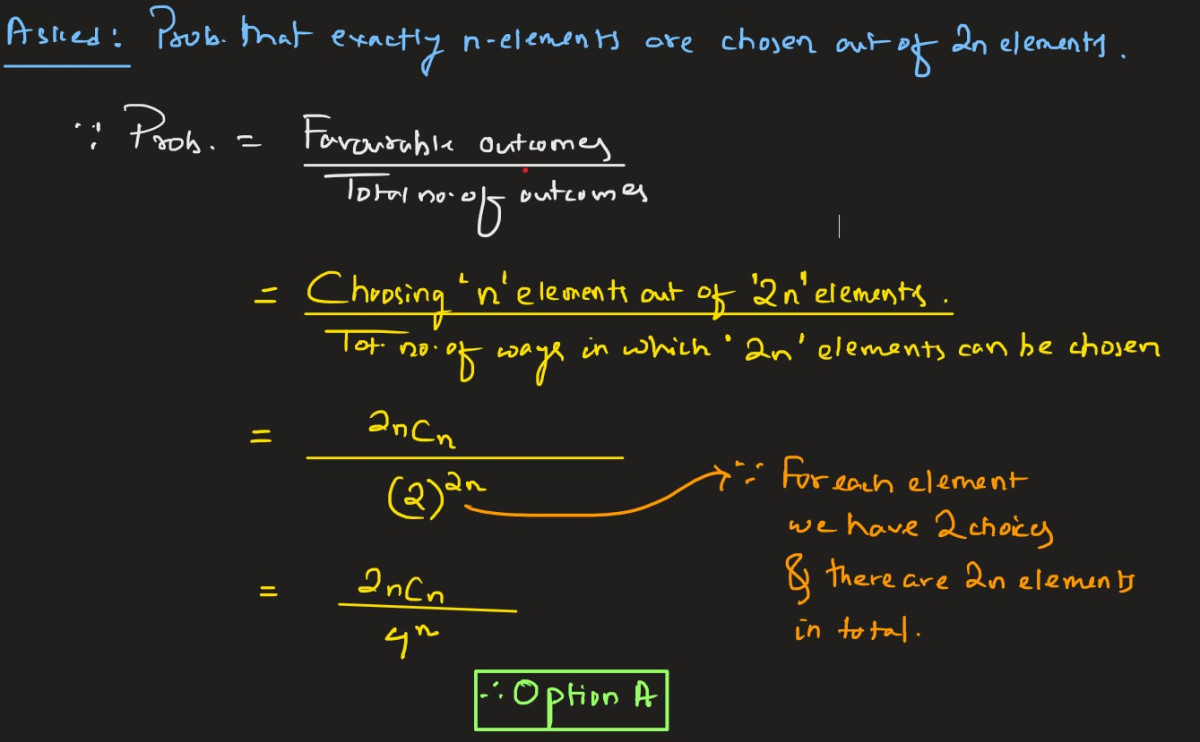 Asked: Prob. that exactly n-elements are chosen out of 2n elements.
∵ Prob. = Favourable outcomes
Total no. of outcomes
= Choosing 'n' elements out of '2n' elements.
Tot. no. of ways in which '2n' elements can be chosen
= 2nCn
(2)^2n
∵ For each element
we have 2 choices
& there are 2n elements
in total.
= 2nCn
4^n
∴ Option A